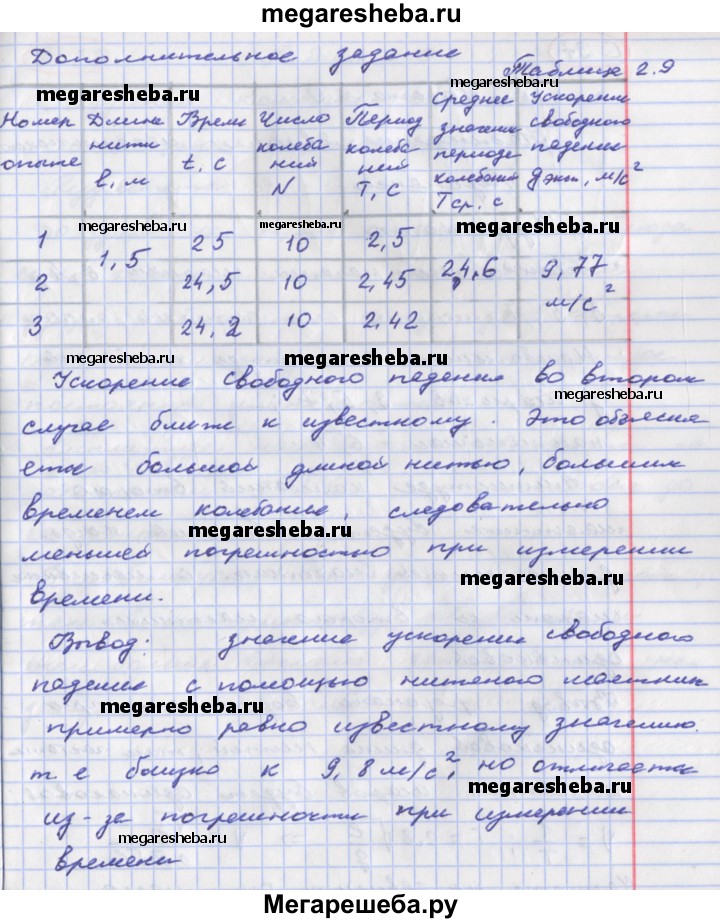 megaresheba.ru
Дополнительное задание
Таблица 2.9
megaresheba.ru
Номер опыта
Длина нити l, м
Время t, с
Число колебаний N
Период колебаний T, с
Среднее значение периода колебаний Tср. с
Ускорение свободного падения gэкт, м/с²
megaresheba.ru megaresheba.ru megaresheba.ru
1 1,5 25 10 2,5
2 24,5 10 2,45 24,6 9,77 м/с²
3 24,2 10 2,42
megaresheba.ru megaresheba.ru
Ускорение свободного падения во втором
megaresheba.ru
случае ближе к известному. Это объясня
ется большой длиной нитью, большим
временем колебание, следовательно
megaresheba.ru
меньшей погрешностью при измерении
megaresheba.ru
времени.
Вывод: значение ускорения свободного
megaresheba.ru
падения с помощью нитяного маятник
megaresheba.ru
примерно равно известному значению.
т е близко к 9,8 м/с², но отличается
megaresheba.ru
из-за погрешности при измерении
megaresheba.ru
времени
Мегарешеба.ру